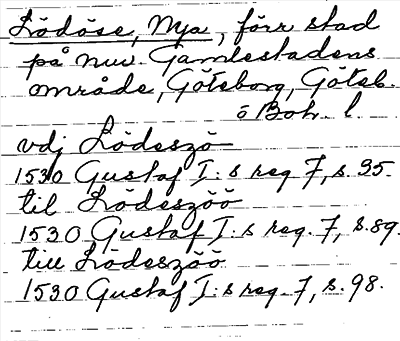 Lödöse, Nya, förr stad
på nuv. Gamlestadens
område, Göteborg, Göteb.
o Boh. l.
vdj Lödeszö
1530 Gustaf I:s reg. 7, s. 95.
til Lödeszöö
1530 Gustaf I:s reg. 7, s. 89.
till Lödeszöö
1530 Gustaf I:s reg. 7, s. 98.